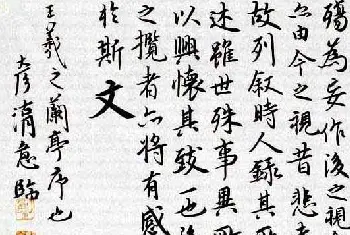 殤為妄作後之視
亦由今之視昔悲
故列叙時人錄其所
述雖世殊事異所
以興懷其致一也後
之攬者亦將有感
於斯文
王羲之蘭亭序也
臨